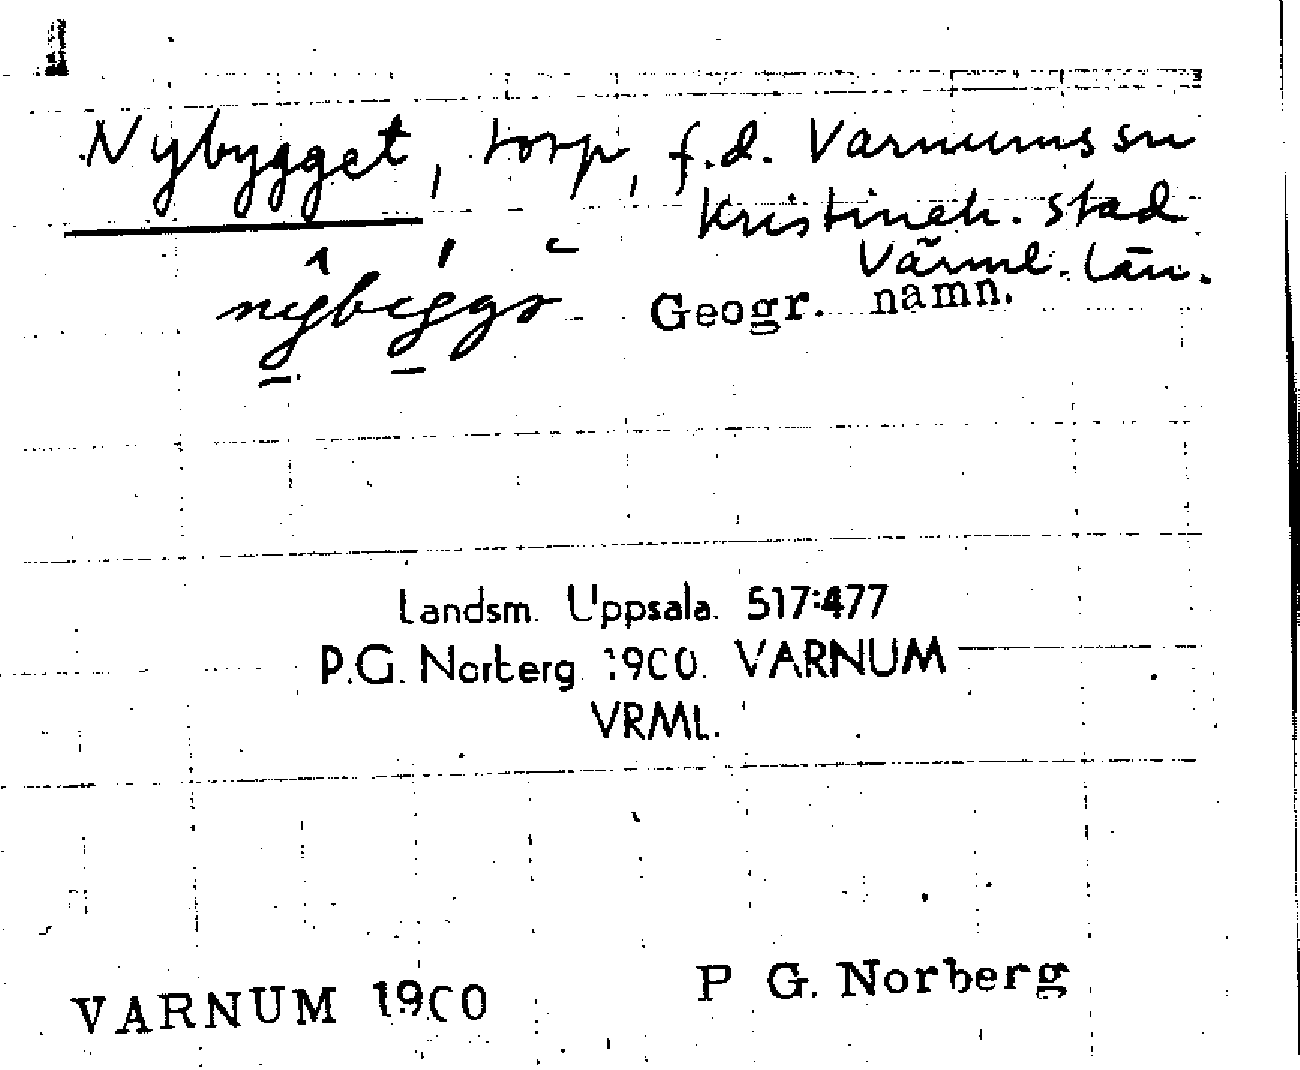 Nybygget, torp, f.d. Varnums sn
Kristineh. stad
Värml. län.
Geogr. namn.
Landsm. Uppsala. 517:477
P.G. Norberg 1900. VARNUM
VRML.
VARNUM 1900
P G. Norberg